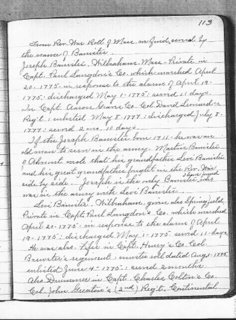 113
From Rev. War Roll of Mass. on Guid, served by
the name of Banister.
Joseph Banister, Wilbraham, Mass. Private in
Capt. Paul Langdon's Co. which marched April
20 - 1775 - in response to the alarm of April 19 -
1775 - discharged May 1 - 1775 - served 11 days.
In Capt. Co. Col. David
Reg't - inlisted May 8 - 1777 - discharged July 8 -
1777 - served 2 mo. 10 days.
If the Joseph Banister born 1711 - he was an
old man to serve in the army. Martin Banister
of wrote that his grandfather Levi Banister
and his great grandfather fought in the Rev. War
side by side. Joseph is the only Banister who
was in the army with Levi Banister.
Levi Banister, Wilbraham, given also Springfield,
Private in Capt. Paul Langdon's Co. which marched
April 20 - 1775 - in response to the alarm of April
19 - 1775 - discharged May 1 - 1775 - served 11 days.
He was also in Capt. Co. Col.
Brewer's regiment - muster roll dated Aug. 1 - 1775
enlisted June 4 - 1775 - served 2 months
Also Drummer in Capt. Charles Colton's Co.
Col. John Greaton's (2nd) Reg't. Continental